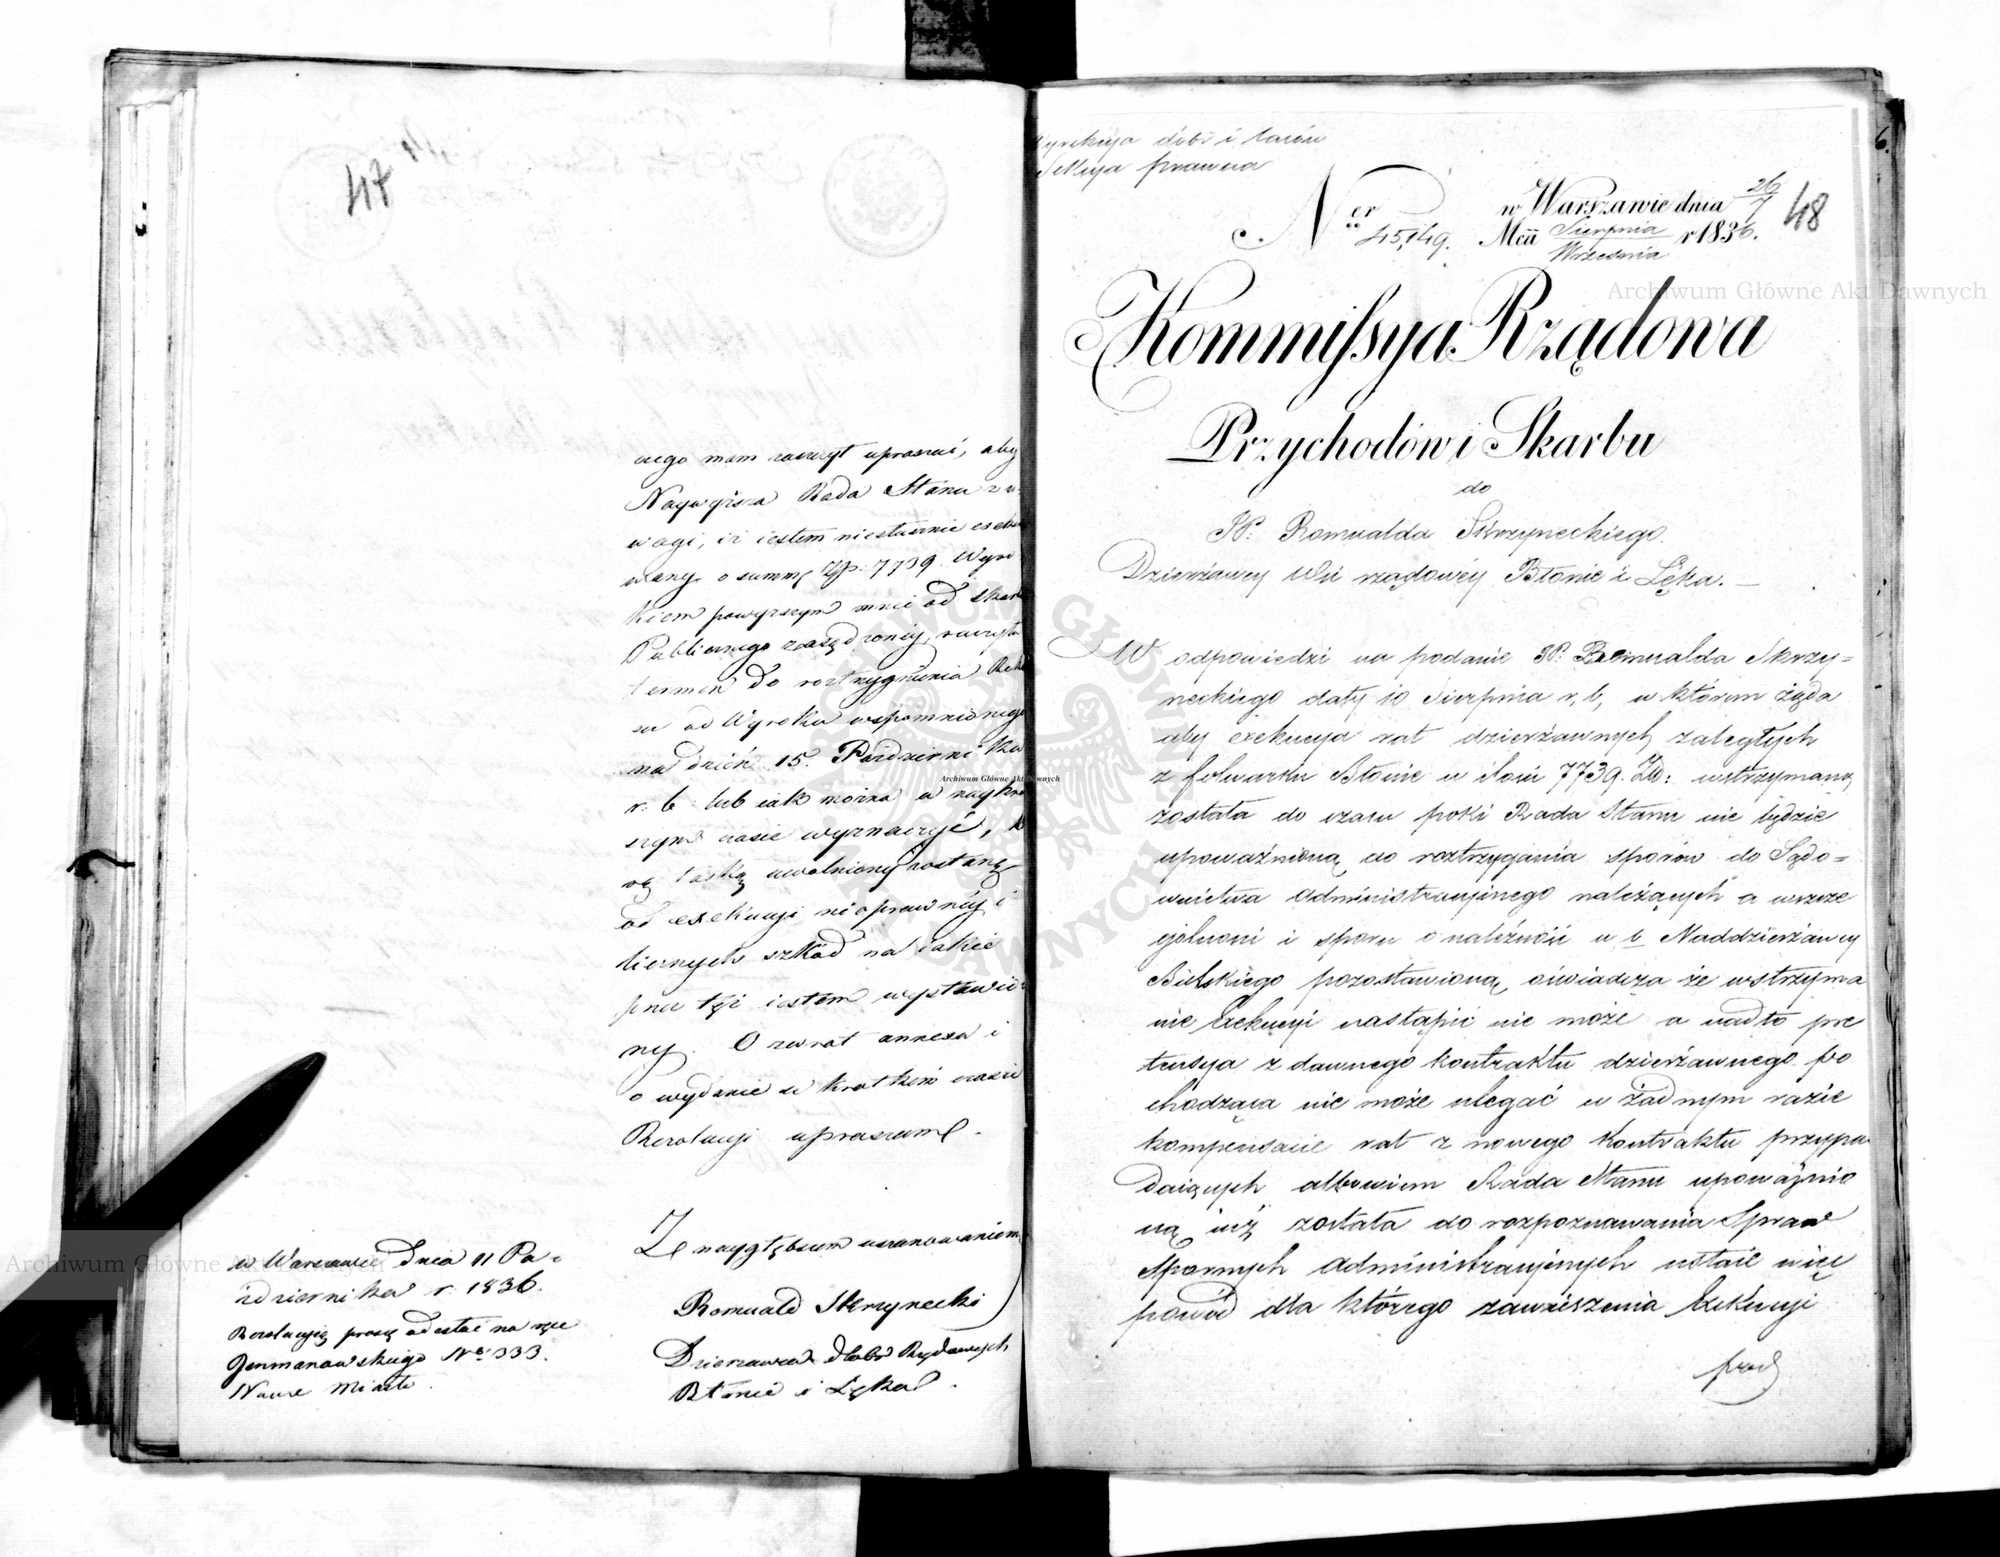 47
czego mam zaszczyt uprosić, aby
Naywyższa Rada Stanu z u
wagi, iż iestem niesłusznie exekwo
wany o summę Złp. 7739. Wyro
kiem powyższym mnie od Skar
Publicznego zasądzoney, raczyła
termin do roztrzygnienia Rekur
su od Wyroku wspomnionego
na dzień 15. Październi ka
r. b. lub iak można w naykró
szym czasie wyznaczyć, k
rą łaską uwolniony zostanę
od exekucyi nieprawnéy i
licznych szkód na iakie
przez téż iestem wystawio
ny. O zwrot annexa i
o wydanie w krótkim czasie
Rezolucyi upraszam.
Z naygłębszem uszanowaniem
Romuald Skrzynecki
Dzierżawca Dóbr Rządowych
Błonie i Łęka.
w Warszawie Dnia 11 Pa-
ździernika r. 1836.
Rezolucyią proszę odesłać na ręce
Germanowskiego No 333.
Nowe Miasto.
Dyrekcya dóbr i lasów
Sekcya prawna
48
Ner 45,149. w Warszawie dnia 26/7
Mca Sierpnia/Września r 1836.
Kommissya Rządowa
Przychodów i Skarbu
do
JP. Romualda Skrzyneckiego.
Dzierżawcy Wsi rządowéy Błonie i Łęka. —
W odpowiedzi na podanie JP. Romualda Skrzy=
neckiego daty 10 Sierpnia r, b, w którem żąda
aby exekucya rat dzierżawnych zaległych
z folwarku Błonie w ilości 7739. Zło: wstrzymaną
została do czasu poki Rada Stanu nie będzie
upoważnioną do roztrzygania sporów do Sądo=
wnictwa administracyjnego należących a wszcze
gólności i sporu o należność u b Naddzierżawcy
Bielskiego pozostawioną, oświadcza że wstrzyma
nie Exekucyi nastąpić nie może a nadto pre
tensya z dawnego kontraktu dzierżawnego po
chodząca nie może ulegać w żadnym razie
kompensacie rat z nowego Kontraktu przypa
daiących albowiem Rada Stanu upoważnio
ną iuż została do rozpoznawania Spraw
Spornych administracyjnych ustaie więc
powód dla którego zawieszenia Exekucyi
pod
Archiwum Główne Akt Dawnych
Archiwum Główne Akt Dawnych
Archiwum Główne Akt Dawnych